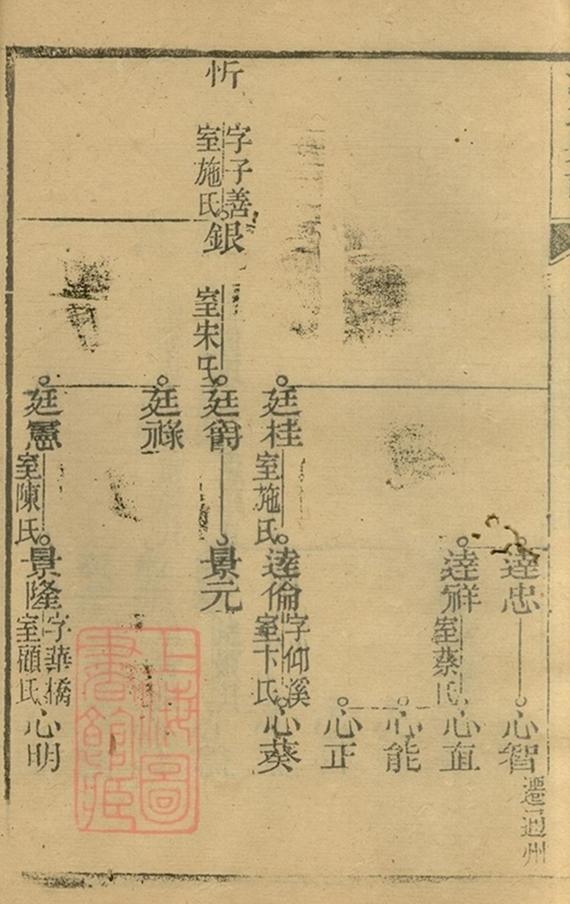 達忠
心智
遷通州
達祥
室蔡氏
心直
心能
心正
廷桂
室施氏
達倫
字仰溪
室卞氏
心葵
忻
字子善
室施氏
銀
室朱氏
廷爵
景元
廷祿
廷憲
室陳氏
景隆
字華橋
室顧氏
心明
上海圖
書館藏